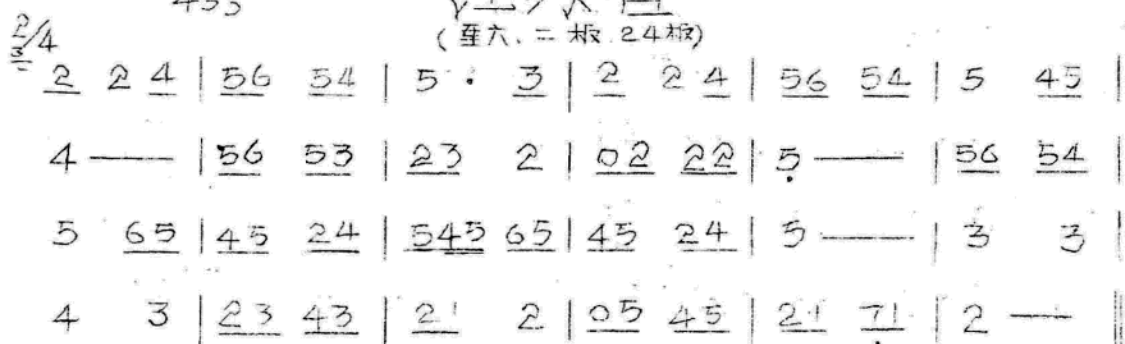 2/4
(重六、二板.24板)
2 2 4 | 56 54 | 5 · 3 | 2 2 4 | 56 54 | 5 45 |
4 — | 56 53 | 23 2 | 02 22 | 5 — | 56 54 |
5 65 | 45 24 | 545 65 | 45 24 | 5 — | 3 3 |
4 3 | 23 43 | 21 2 | 05 45 | 21 71 | 2 — ‖